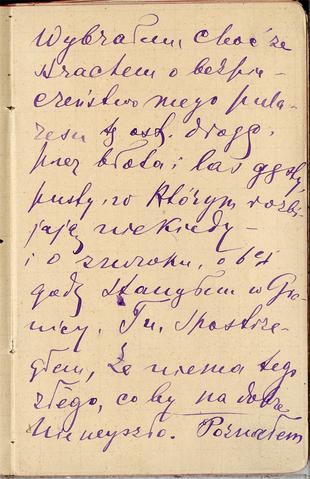 Wybrałem, choć ze
strachem o bezpie-
czeństwo mego pula-
resu tę ost. drogę,
przez błota i las gęsty
pusty, w którym rozbi-
jają niekiedy –
i o zmroku, o 6ej
godz stanąłem w Gra-
nicy. Tu spostrze-
głem, że niema tego
złego, coby na dobre
nie wyszło. Poznałem